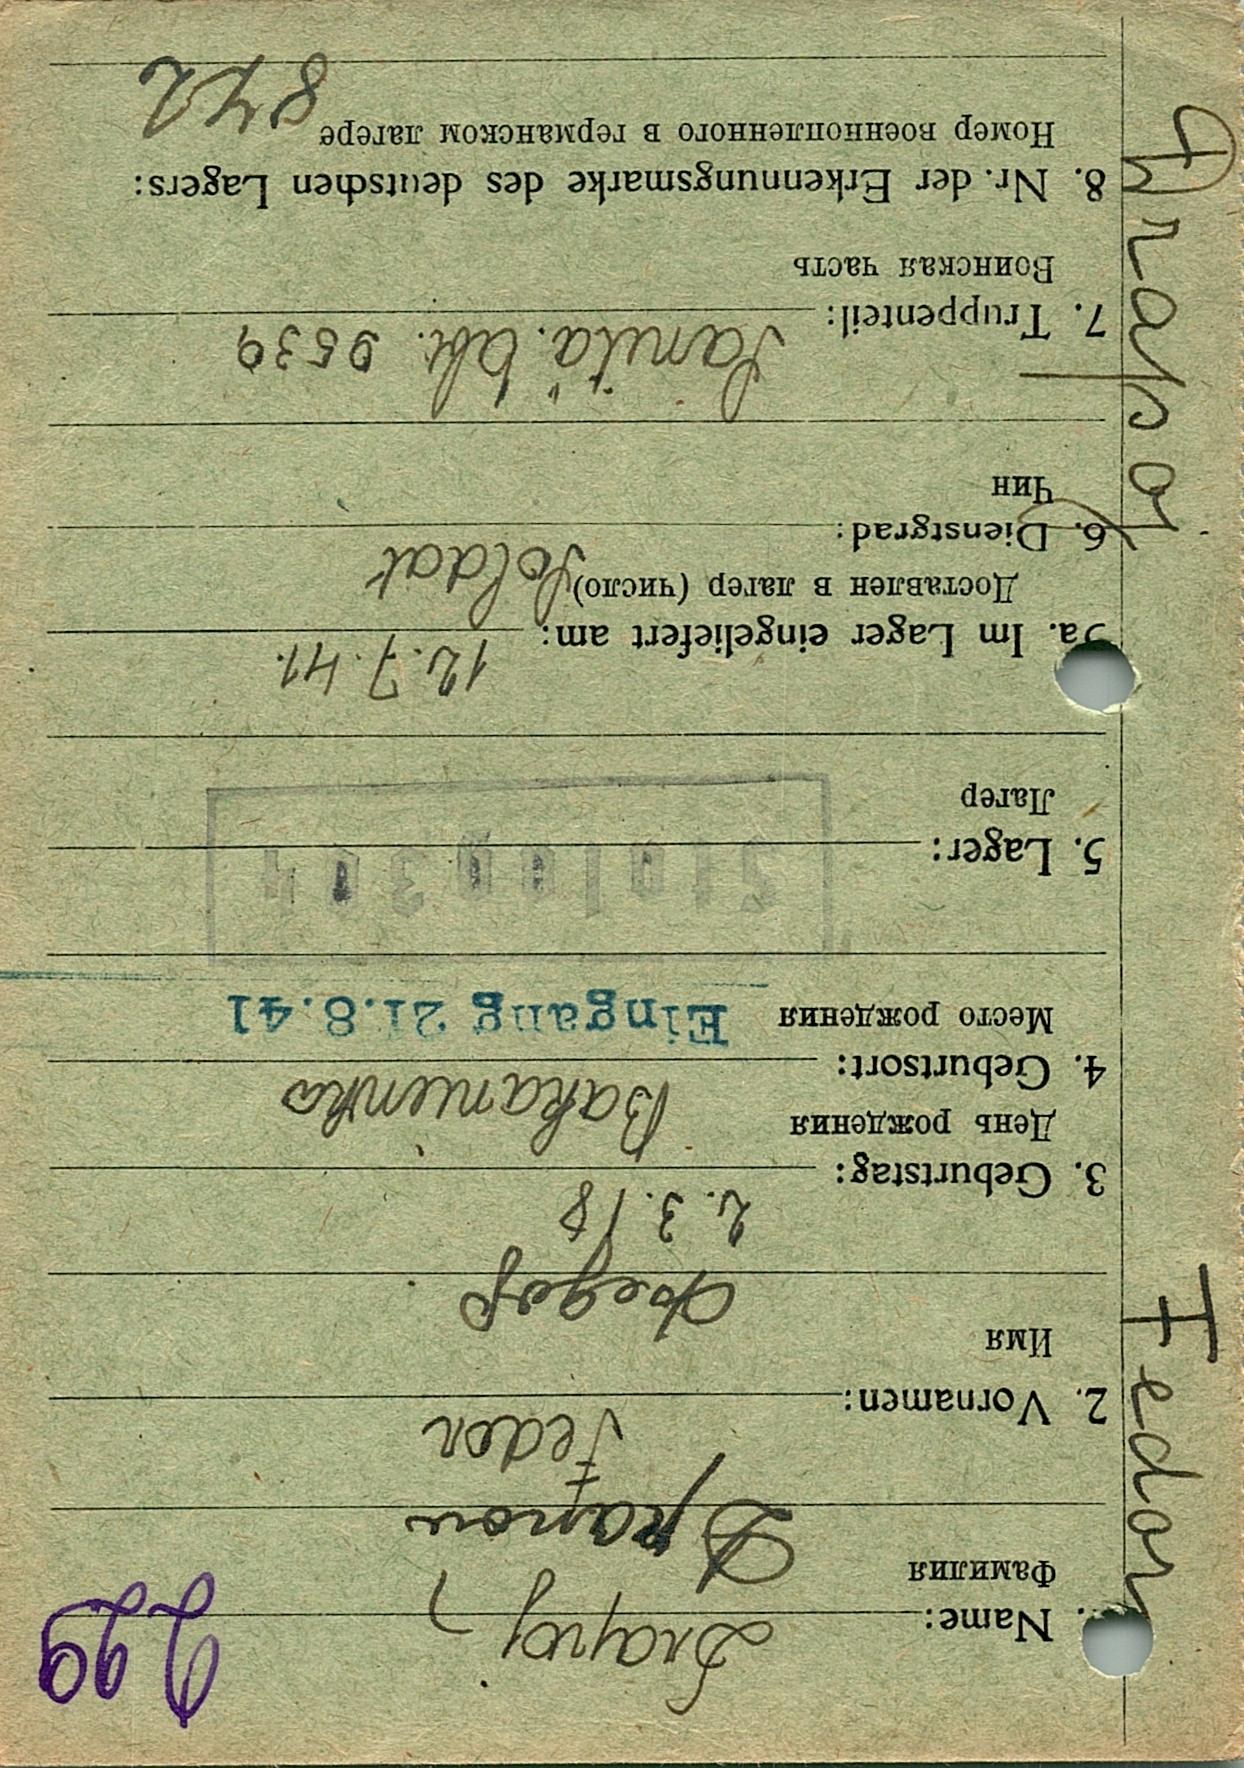 Name: Drapoj
Фамилия
2. Vornamen: Fedor
Имя Федор
3. Geburtstag: 2.3.18
День рождения
4. Geburtsort:
Место рождения Eingang 21.8.41
5. Lager:
Лагер
5a. Im Lager eingeliefert am: 12.7.41.
Доставлен в лагер (число)
6. Dienstgrad: Soldat
Чин
7. Truppenteil: Sanitä. Abt. 9539
Воинская часть
8. Nr. der Erkennungsmarke des deutschen Lagers:
Номер военнопленного в германском лагере
Drapoj
Fedor